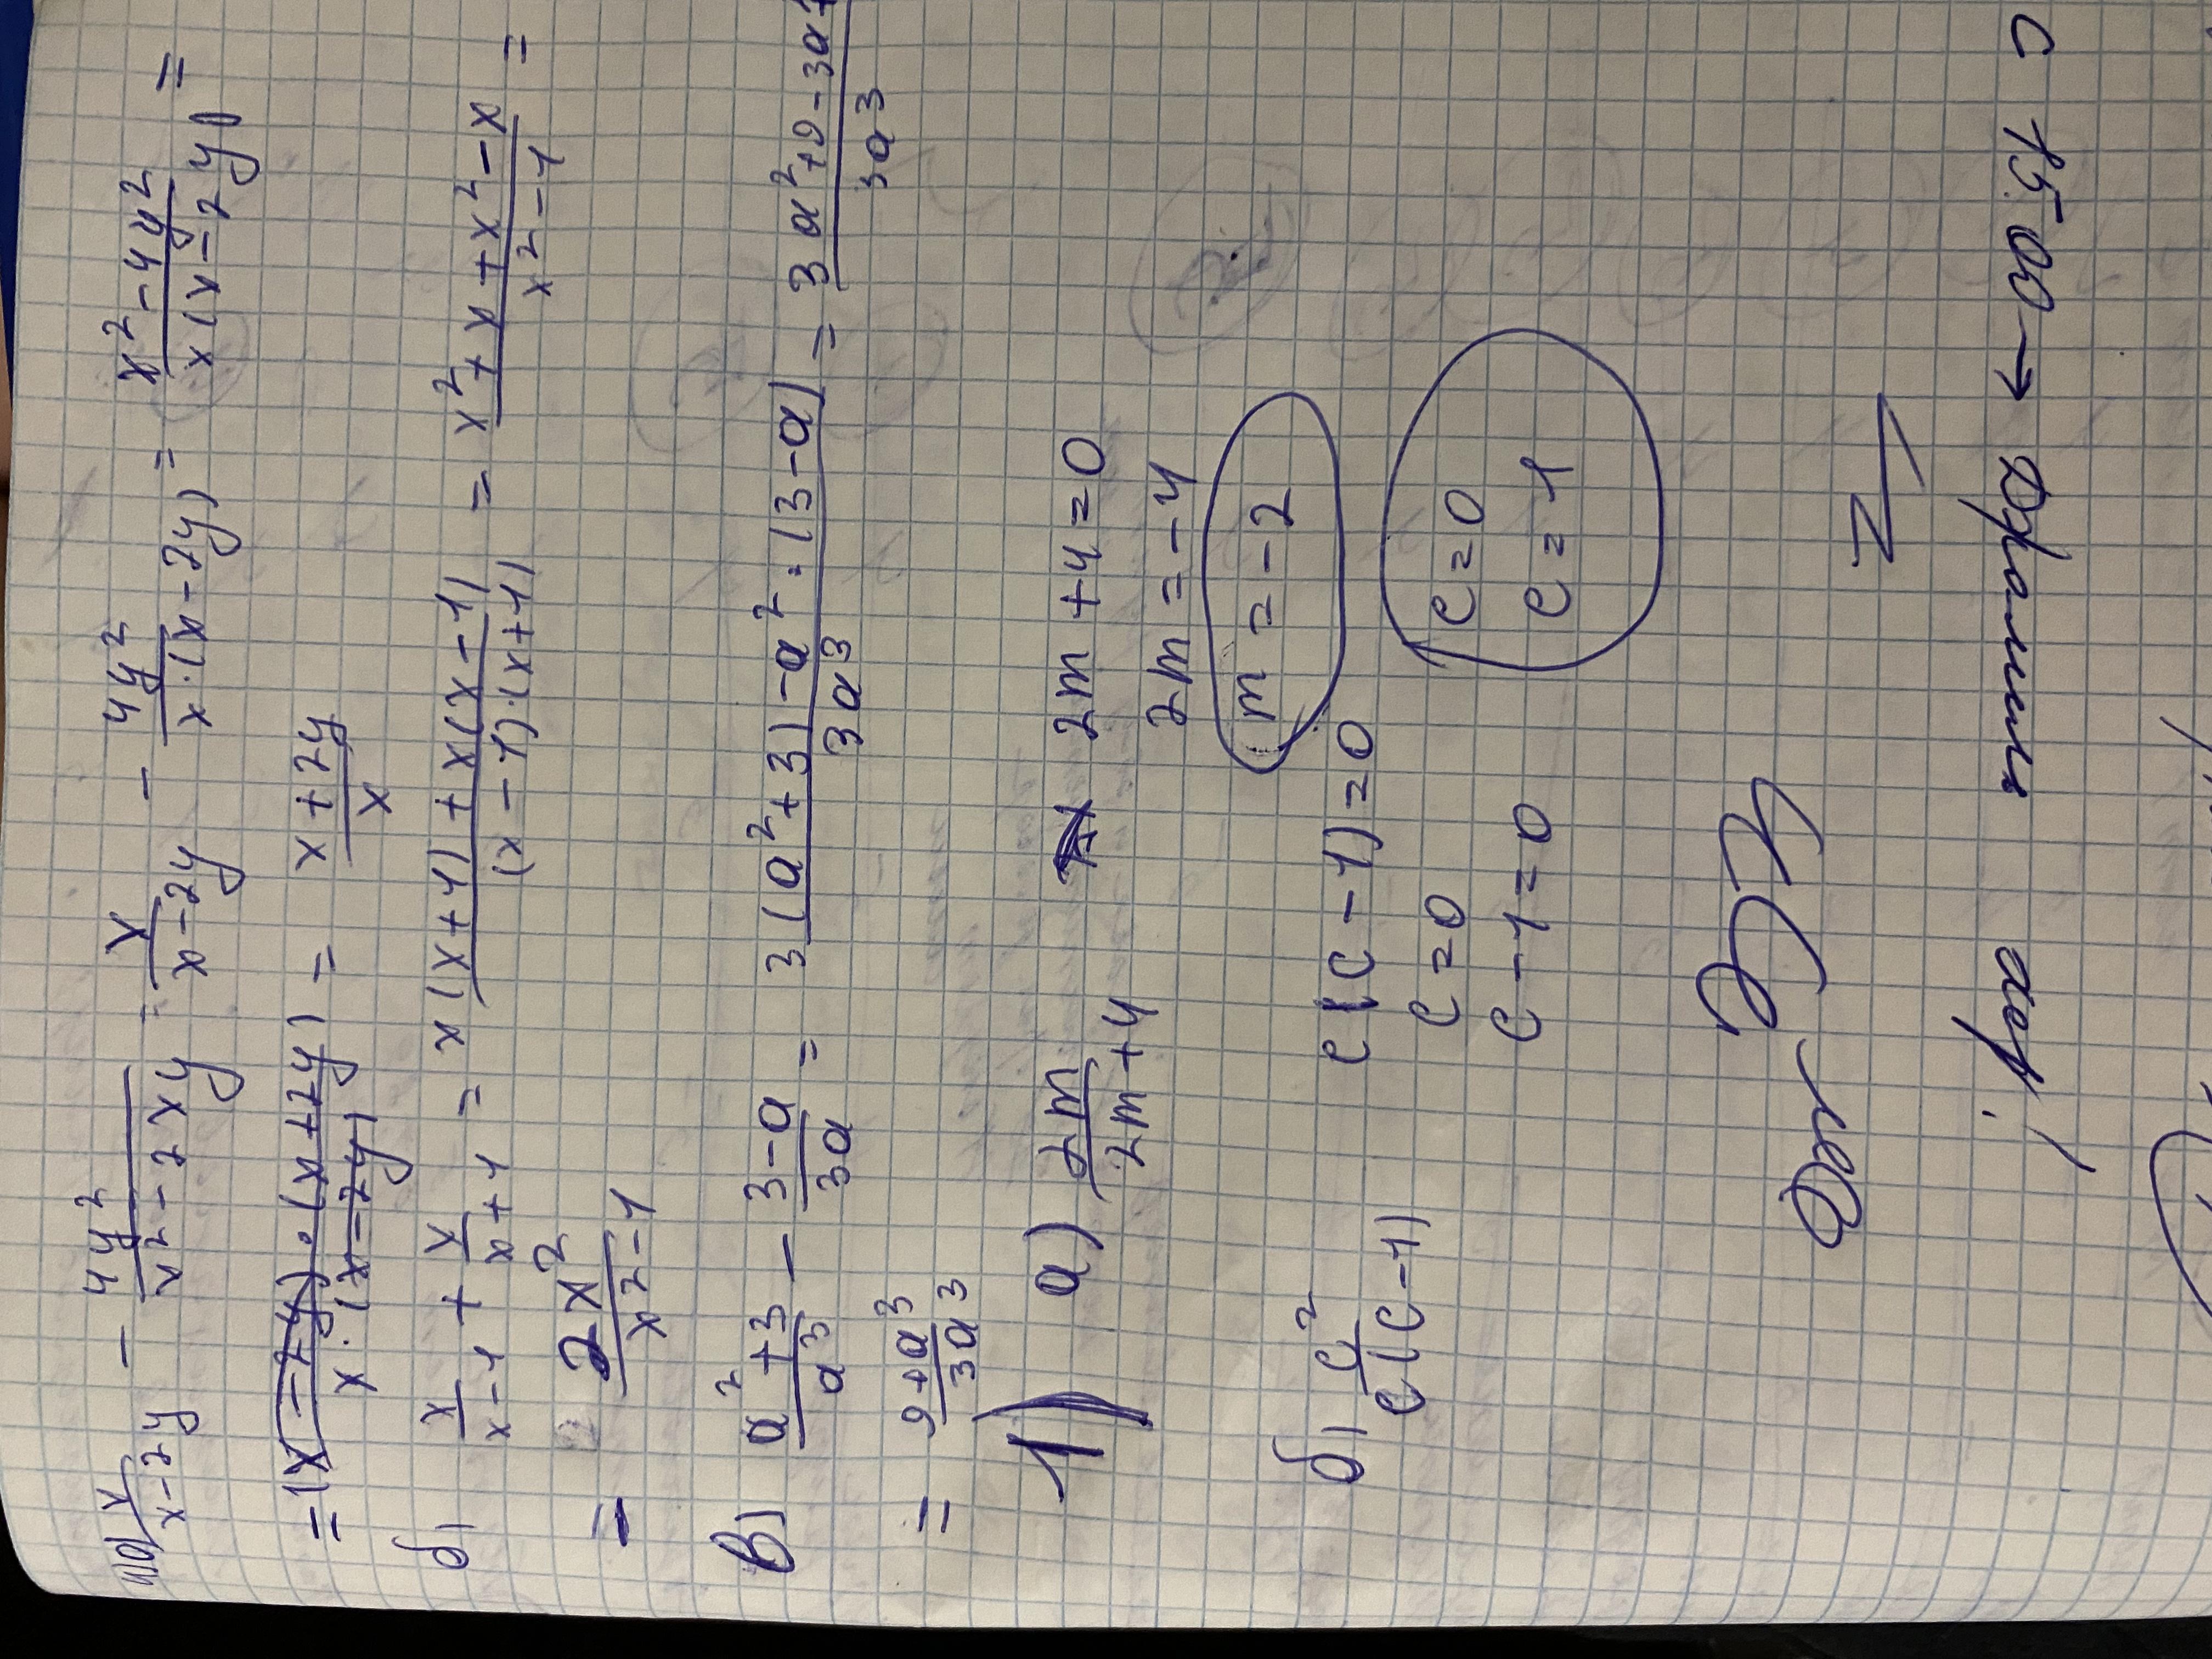 4) а) x/(x-2y) - 4y²/(x²-2xy) = x/(x-2y) - 4y²/(x·(x-2y)) = (x²-4y²)/(x(x-2y)) =
= ((x-2y)·(x+2y))/(x·(x-2y)) = (x+2y)/x
б) x/(x-1) + x/(x+1) = (x(x+1)+x(x-1))/((x-1)·(x+1)) = (x²+x+x²-x)/(x²-1) =
= 2x²/(x²-1)
В) (a²+3)/a³ - (3-a)/3a = (3(a²+3)-a²·(3-a))/3a³ = (3a²+9-3a²+)/3a³
= (9+a³)/3a³
1) а) 2m/(2m+4) 2m+4=0
2m=-4
m=-2
б) c²/(c(c-1)) c(c-1)=0
c=0 c=0
c-1=0 c=1
с 15-00 →